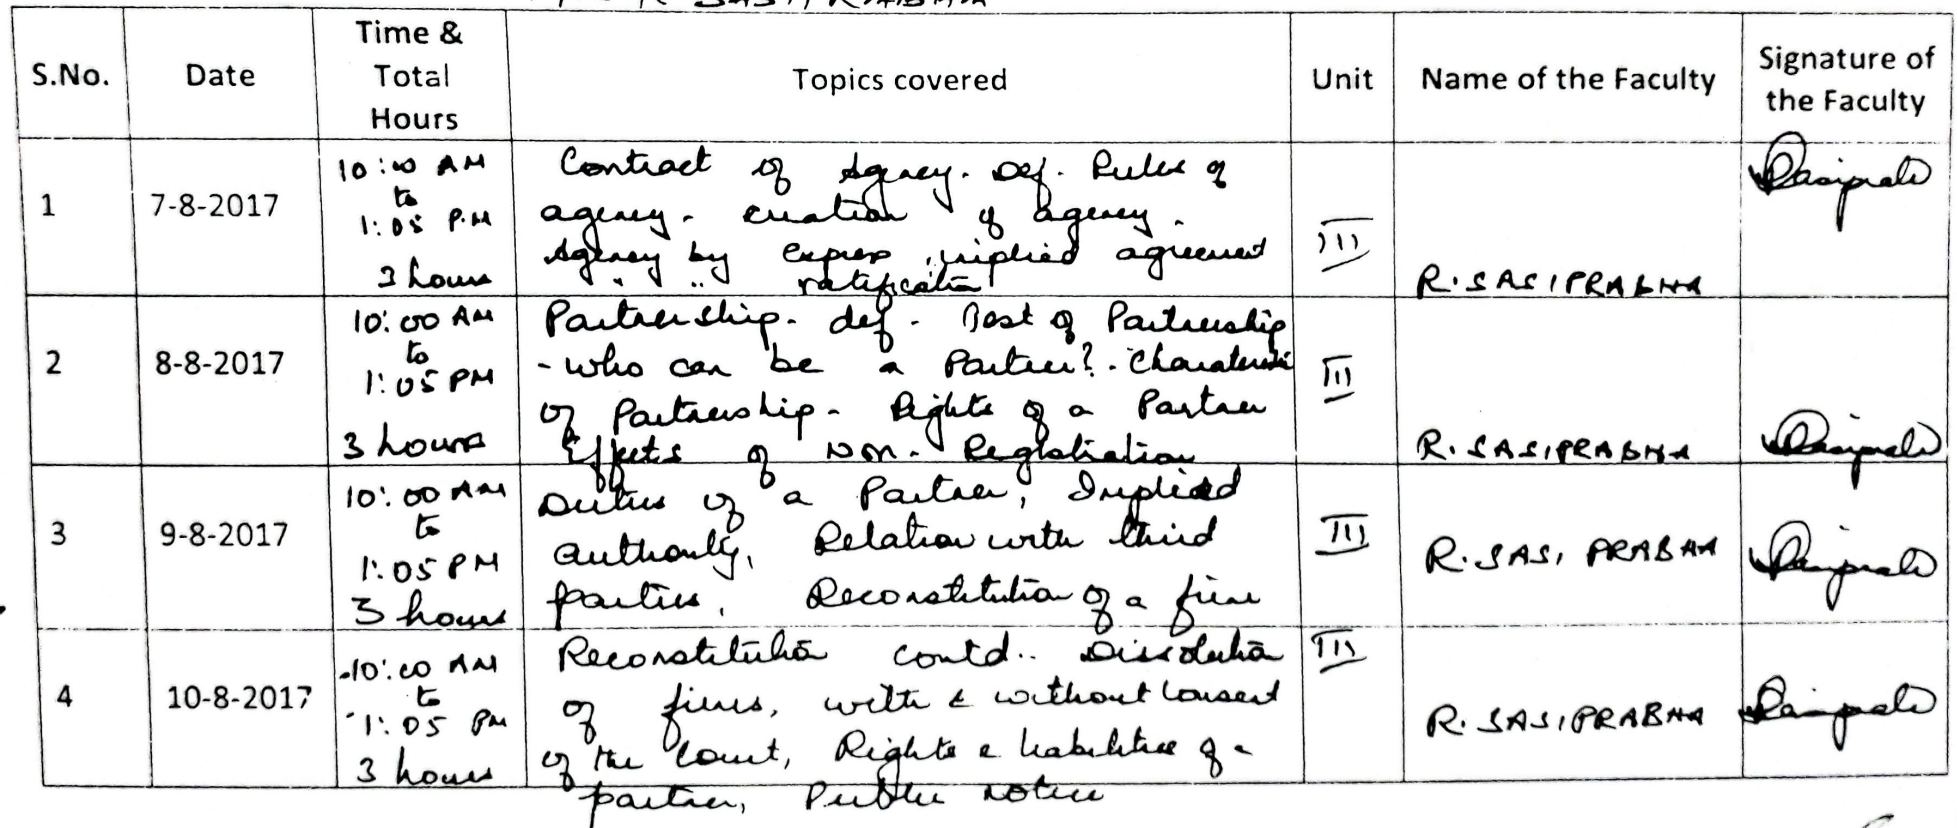 R SASIPRABHA
S.No. Date Time & Total Hours Topics covered Unit Name of the Faculty Signature of the Faculty
1 7-8-2017
10:00 AM
to
1:05 P.M
3 hours
Contract of Agency. Def. Rules of
agency. creation of agency.
Agency by express, implied agreement
" " ratification
III
R. SASIPRABHA
Sasiprabha
2 8-8-2017
10:00 AM
to
1:05 PM
3 hours
Partnership. def. Test of Partnership
- who can be a Partner? - Characteristic
of Partnership. Rights of a Partner
Effects of Non-Registration
III
R. SASIPRABHA
Sasiprabha
3 9-8-2017
10:00 AM
to
1:05 PM
3 hours
Duties of a Partner, Implied
authority, Relation with third
parties, Reconstitution of a firm
III
R. SASI PRABHA
Sasiprabha
4 10-8-2017
10:00 AM
to
1:05 PM
3 hours
Reconstitution contd.. Dissolution
of firms, with & without consent
of the Court, Rights & liabilities of a
partner, Public notice
III
R. SASIPRABHA
Sasiprabha